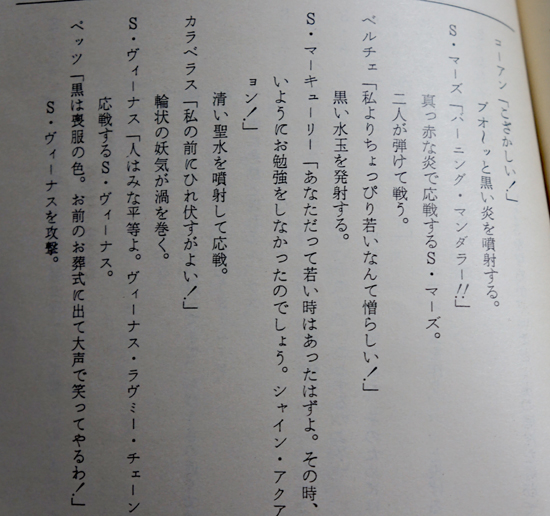 コーアン「こざかしい！」
ブオ〜ッと黒い炎を噴射する。
S・マーズ「バーニング・マンダラー!!」
真っ赤な炎で応戦するS・マーズ。
二人が弾けて戦う。
ベルチェ「私よりちょっぴり若いなんて憎らしい！」
黒い水玉を発射する。
S・マーキューリー「あなただって若い時はあったはずよ。その時、
いようにお勉強をしなかったのでしょう。シャイン・アクア
ョン！」
清い聖水を噴射して応戦。
カラベラス「私の前にひれ伏すがよい！」
輪状の妖気が渦を巻く。
S・ヴィーナス「人はみな平等よ。ヴィーナス・ラヴミー・チェーン
応戦するS・ヴィーナス。
ペッツ「黒は喪服の色。お前のお葬式に出て大声で笑ってやるわ！」
S・ヴィーナスを攻撃。